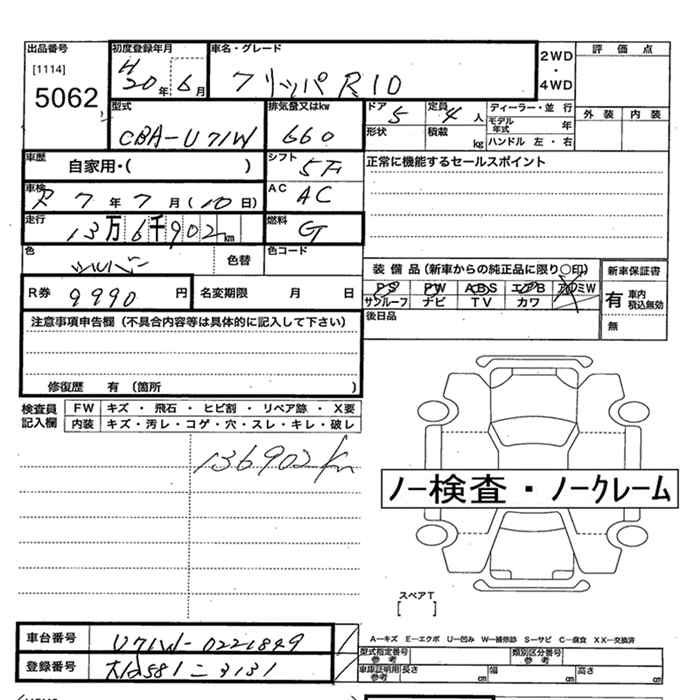 出品番号 初度登録年月 車名・グレード 2WD・4WD 評価点
[1114]
5062
H20年6月 フリッパRIO
型式 排気量又はkw ドア 定員 ディーラー・並行 外装 内装
CBA-U71W 660 5 4人 モデル年式 年
形状 積載 kg ハンドル 左・右
車歴 自家用・( ) シフト 5F 正常に機能するセールスポイント
車検 7年7月(10日) AC AC
走行 13万6千902km 燃料 G
色 シルバー 色替 色コード
装備品(新車からの純正品に限り○印) 新車保証書
PS PW ABS エアB アルミW 有 車内積込無効
サンルーフ ナビ TV カワ 無
R券 9990円 名変期限 月 日
後日品
注意事項申告欄(不具合内容等は具体的に記入して下さい)
修復歴 有(箇所 )
検査員記入欄 FW キズ・飛石・ヒビ割・リペア跡・X要
内装 キズ・汚レ・コゲ・穴・スレ・キレ・破レ
136902km
ノー検査・ノークレーム
スペアT
[ ]
A－キズ E－エクボ U－凹み W－補修跡 S－サビ C－腐食 XX－交換済
車台番号 U71W-0221849
型式指定番号 参考 類別区分番号 参考
登録番号 581 こ 3131
車庫証明用 参考 長さ cm 幅 cm 高さ cm